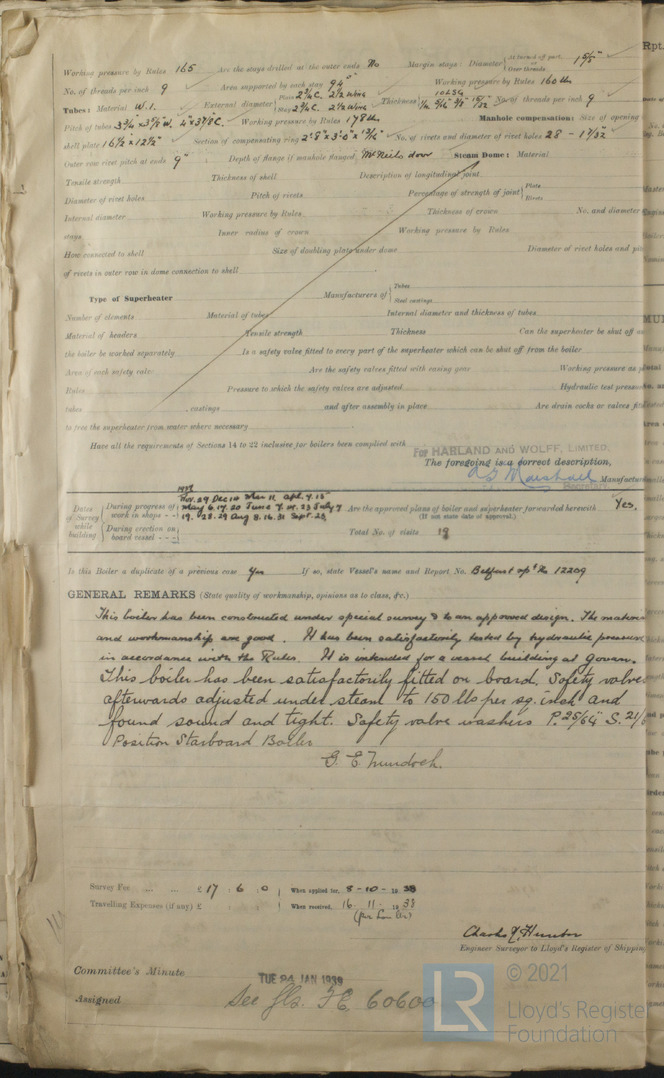 Working pressure by Rules 165 Are the stays drilled at the outer ends No Margin stays: Diameter { At turned off part, or Over threads 1 5/8"
No. of threads per inch 9 Area supported by each stay 94" Working pressure by Rules 160 lbs
Tubes: Material W.I. External diameter { Plain 2¾ C. 2½ Wing Stay 2¾ C. 2½ Wing Thickness { 10 LSG No. of threads per inch 9
Pitch of tubes 3¾" x 3⅞ W. 4" x 3⅞ C. Working pressure by Rules 178 lb Manhole compensation: Size of opening
shell plate 16½" x 12½" Section of compensating ring No. of rivets and diameter of rivet holes 28 - 1 1/32"
Outer row rivet pitch at ends 9" Depth of flange if manhole flanged McNeils door Steam Dome: Material
Tensile strength Thickness of shell Description of longitudinal joint
Diameter of rivet holes Pitch of rivets Percentage of strength of joint { Plate Rivets
Internal diameter Working pressure by Rules Thickness of crown No. and diameter
stays Inner radius of crown Working pressure by Rules
How connected to shell Size of doubling plate under dome Diameter of rivet holes and pit
of rivets in outer row in dome connection to shell
Type of Superheater Manufacturers of { Tubes Steel castings
Number of elements Material of tubes Internal diameter and thickness of tubes
Material of headers Tensile strength Thickness Can the superheater be shut off an
the boiler be worked separately Is a safety valve fitted to every part of the superheater which can be shut off from the boiler
Area of each safety valve Are the safety valves fitted with easing gear Working pressure as p
Rules Pressure to which the safety valves are adjusted Hydraulic test pressure
tubes , castings and after assembly in place Are drain cocks or valves fit
to free the superheater from water where necessary
Have all the requirements of Sections 14 to 22 inclusive for boilers been complied with
For HARLAND AND WOLFF, LIMITED,
The foregoing is a correct description,
Marshall Manufactur
Secretary
Dates of Survey while building { During progress of work in shops - - Nov. 29 Dec 14 Mar 11 Apl. 7. 13 May 6. 17. 20 June 7. 14. 23 July 7 19. 28. 29 Aug 8. 16. 31 Sept. 23 Are the approved plans of boiler and superheater forwarded herewith Yes.
(If not state date of approval.)
During erection on board vessel - - - Total No. of visits 19
Is this Boiler a duplicate of a previous case Yes If so, state Vessel's name and Report No. Belfast rpt No 12209
GENERAL REMARKS (State quality of workmanship, opinions as to class, &c.)
This boiler has been constructed under special survey & to an approved design. The materia
and workmanship are good. It has been satisfactorily tested by hydraulic pressure
in accordance with the Rules. It is intended for a vessel building at Govan.
This boiler has been satisfactorily fitted on board. Safety valve
afterwards adjusted under steam to 150 lbs per sq. inch and
found sound and tight. Safety valve washers P. 25/64" S. 21/
Position Starboard Boiler
G. E. Murdoch.
Survey Fee ... ... £ 17 : 6 : 0 When applied for, 8 - 10 - 1938
Travelling Expenses (if any) £ : : When received, 16. 11. 1938
Charles Hunter
Engineer Surveyor to Lloyd's Register of Shipping
Committee's Minute TUE 24 JAN 1939
Assigned See Gls. F.E. 60600
LR © 2021
Lloyd's Registe
Foundation
Rpt.